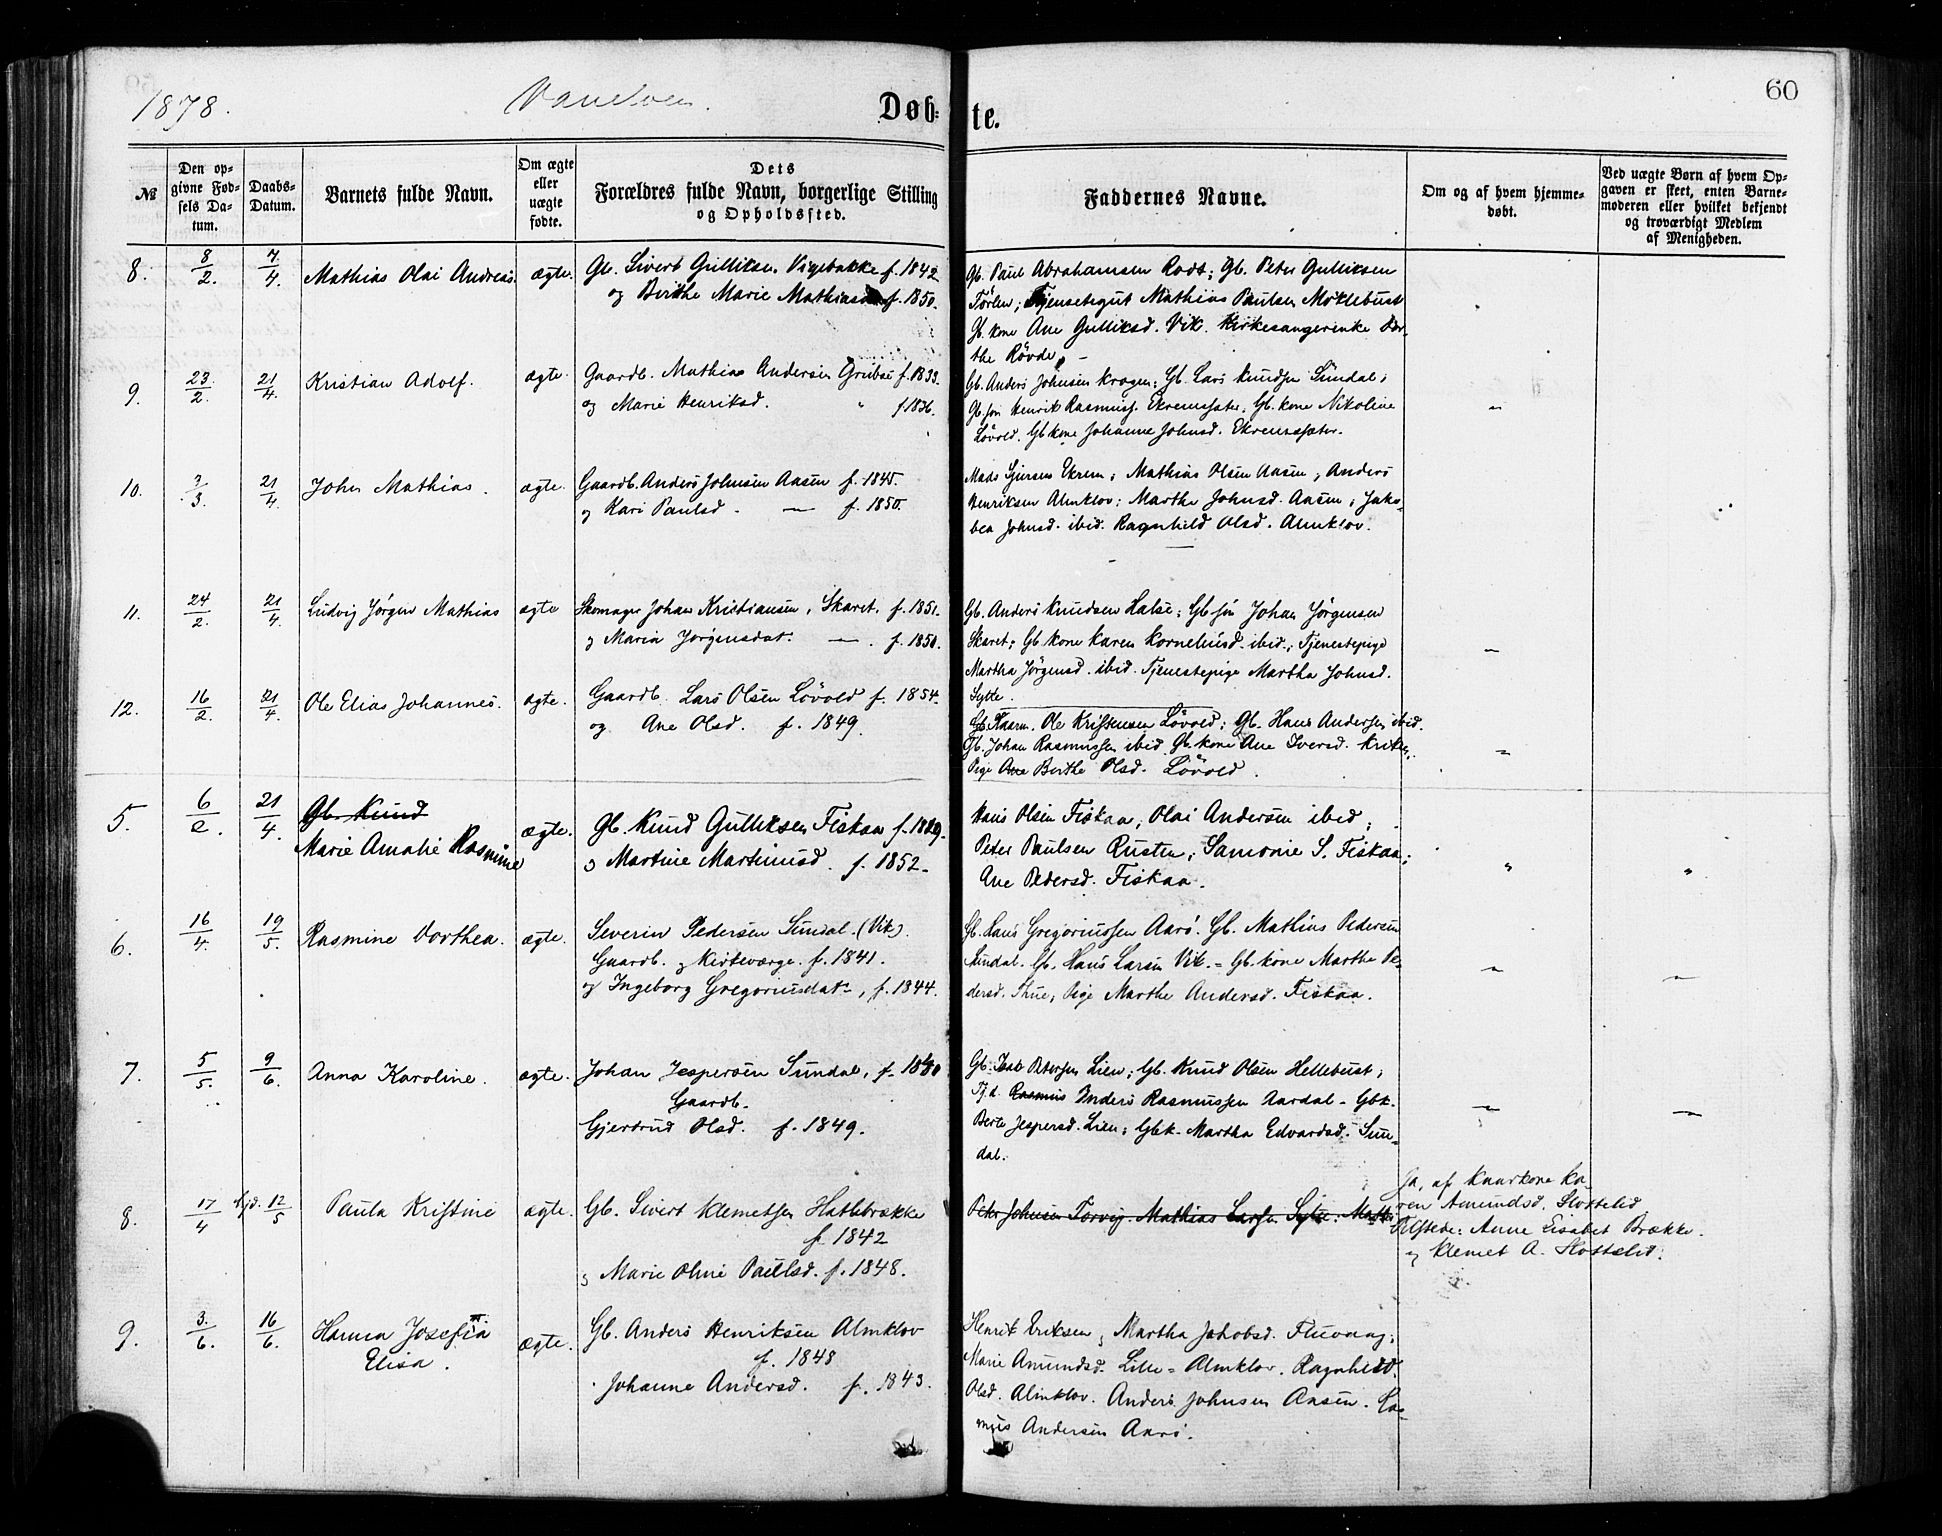 1878.
Vanelven.
Døb=
te.
60
№
Den op-
givne Fød-
sels Da-
tum.
Daabs-
Datum.
Barnets fulde Navn.
Om ægte
eller
uægte
fødte.
Dets
Forældres fulde Navn, borgerlige Stilling
og Opholdssted.
Faddernes Navne.
Om og af hvem hjemme-
døbt.
Ved uægte Børn af hvem Op-
gaven er skeet, enten Barne-
moderen eller hvilket bekjendt
og troværdigt Medlem
af Menigheden.
8. 8/2. 7/4. Mathias Olai Andreas. ægte. Gb. Sivert Gulliksen Vigebakke f. 1842
og Berthe Marie Mathiasd. f. 1850.
Gb. Paul Abrahamsen Rodt; Gb. Peter Gulliksen
Tørlen; Tjenestegut Mathias Paulsen Møklebust
Gb. kone Ane Gulliksd. Vik. Kirkesangerenke Dor-
the Røvde. –
9. 23/2. 21/4. Kristian Adolf. ægte. Gaardb. Mathias Andersen Grubse f. 1833.
og Marie Henriksd. " f. 1836.
Gb. Anders Johnsen Kragen; Gb. Lars Knudsen Sundal;
Gb. søn Henrik Rasmuss. Ekremsæter. Gb. kone Nikoline
Løvold. Gb kone Johanne Johnsd. Ekremsæter.
"
10. 3/3. 21/4. John Mathias. ægte. Gaardb. Anders Johnsen Aasen f. 1845.
og Kari Paulsd. — f. 1850.
Mads Sjursen Ekrem; Mathias Olsen Aasen; Anders
Henriksen Almklov; Martha Johnsd. Aasen; Jako-
bea Johnsd. ibid. Ragnhild Olsd. Almklov.
11. 24/2. 21/4. Ludvig Jørgen Mathias ægte Skomager Johan Kristiansen, Skaret. f. 1851.
og Maria Jørgensdat. — . f. 1850.
Gb. Anders Knudsen Halse; Gb søn Johan Jørgensen
Skaret; Gb kone Karen Korneliusd. ibid.; Tjenestepige
Martha Jørgensd. ibid. Tjenestepige Martha Johnsd.
Sytte.
"
12. 16/2. 21/4. Ole Elias Johannes. ægte. Gaardb. Lars Olsen Løvold f. 1854.
og Ane Olsd. f. 1849.
Gb. Kaarm. Ole Kristensen Løvold; Gb. Hans Andersen ibid.
Gb. Johan Rasmussen ibid. Gb. kone Ane Iversd.
Pige Ane Berthe Olsd. Løvold.
"
5. 6/2. 21/4. Gb. Knud
Marie Amalie Rasmine ægte. Gb. Knud Gulliksen Fiskaa f. 1849.
og Martine Martinusd. f. 1852.
Hans Olsen Fiskaa; Olai Andersen ibid;
Peter Paulsen Rusten; Samonie S. Fiskaa;
Ane Pedersd. Fiskaa.
" "
6. 16/4. 19/5. Rasmine Dorthea. ægte. Severin Pedersen Sundal. (Vik).
Gaardb. og Kirkeværge. f. 1841.
og Ingeborg Gregoriusdatr, f. 1844.
Gb. Hans Gregoriussen Aarø. Gb. Mathias Pedersen
Sundal. Gb. Hans Larsen Vik. – Gb. kone Marthe Pe-
dersd. Thue; Pige Marthe Andersd. Fiskaa.
" "
7. 5/5. 9/6. Anna Karoline. ægte. Johan Jespersen Sundal, f. 1840
Gaardb.
Gjertrud Olsd. f. 1849.
Gb. Isak Petersen Lien; Gb. Knud Olsen Hellebust;
Tj. d. Rasmus Anders Rasmussen Aardal – Gbk.
Berte Jespersd. Lien; Gbk. Martha Edvardsd. Sun-
dal.
" "
8. 17/4 Hjd. 12/5 Paula Kristine ægte. Gb. Sivert Klemetsen Hatlebrække
f. 1842
og Marie Oline Paulsd. f. 1848.
Peter Johnsen Torvig. Mathias Larsen Sytte.
Ja, af Kaarkone Ka-
ren Amundsd. Slottelid
Tilstede: Anne Lisabet Brække.
og Klemet A. Slottelid.
9. 3/6. 16/6. Hanna Josefia
Elisa. ægte. Gb. Anders Henriksen Almklov
f. 1848
Johanne Andersd. f. 1843.
Henrik Eriksen og Martha Jakobsd. Fluvaag;
Marie Amundsd. Lille-Almklov. Ragnhild
Olsd. Almklov. Anders Johnsen Aasen. Ras-
mus Andersen Aarø.